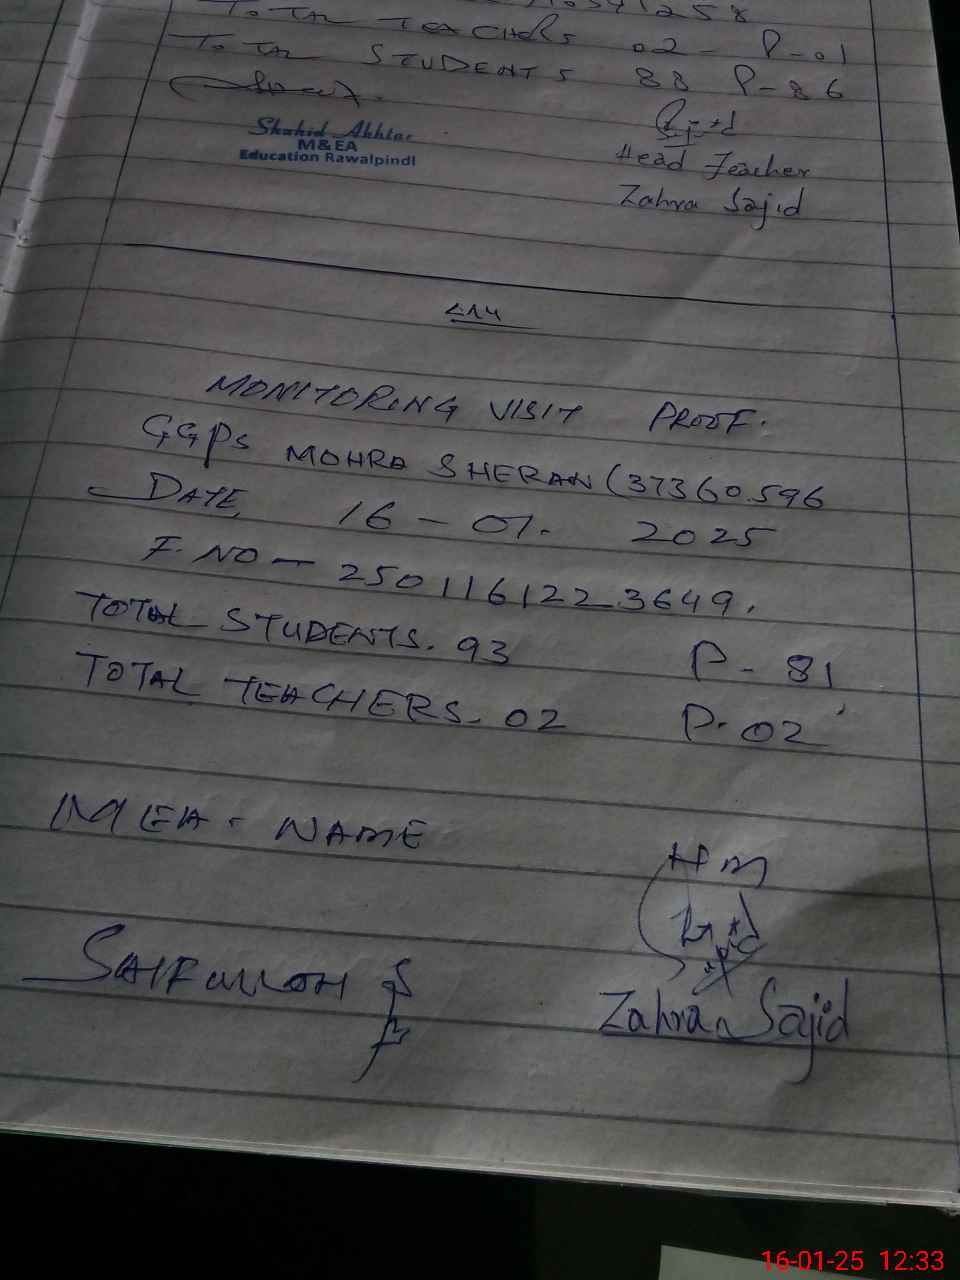 TOTAL TEACHERS 02 - P-01
TOTAL STUDENTS 88 P-86
Shahid Akhtar
M&EA
Education Rawalpindi
Head Teacher
Zahra Sajid
MONITORING VISIT PROOF.
GGPS MOHRA SHERAN (37360596
DATE, 16-01. 2025
F. NO - 2501161223649.
TOTAL STUDENTS. 93 P- 81
TOTAL TEACHERS. 02 P. 02
MEA. NAME
HM
SAIFULLAH
Zahra Sajid
16-01-25 12:33